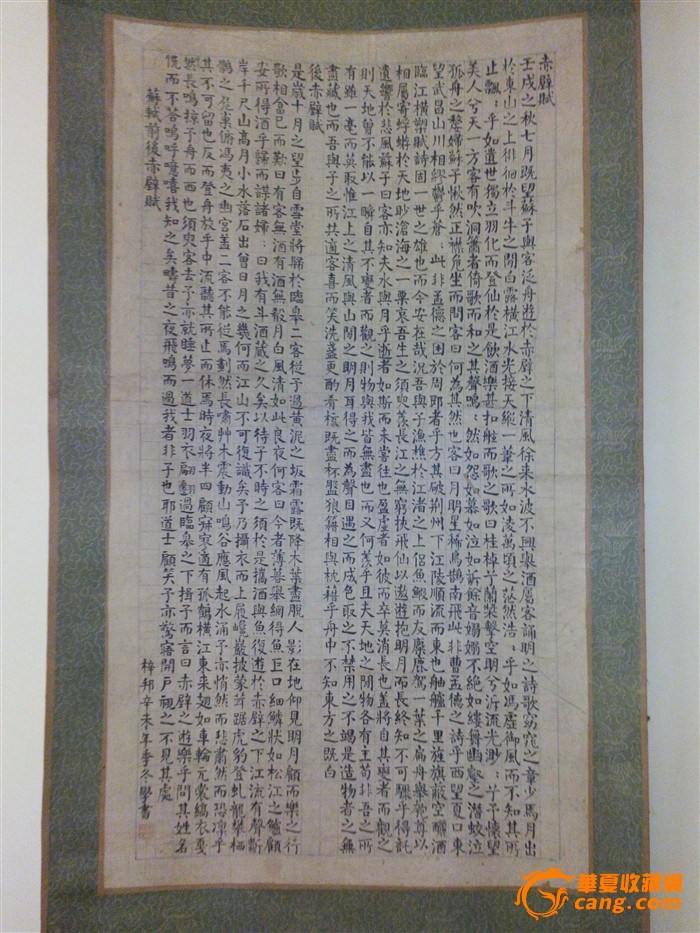 赤壁賦
壬戌之秋七月既望蘇子與客泛舟遊於赤壁之下清風徐來水波不興舉酒屬客誦明之詩歌窈窕之章少焉月出
於東山之上徘徊於斗牛之間白露橫江水光接天縱一葦之所如凌萬頃之茫然浩〻乎如馮虛御風而不知其所
止飄〻乎如遺世獨立羽化而登仙於是飲酒樂甚扣舷而歌之歌曰桂棹兮蘭槳擊空明兮泝流光渺〻兮予懷望
美人兮天一方客有吹洞簫者倚歌而和之其聲嗚〻然如怨如慕如泣如訴餘音嫋嫋不絕如縷舞幽壑之潛蛟泣
孤舟之嫠婦蘇子愀然正襟危坐而問客曰何為其然也客曰月明星稀烏鵲南飛此非曹孟德之詩乎西望夏口東
望武昌山川相繆鬱乎蒼〻此非孟德之困於周郎者乎方其破荊州下江陵順流而東也舳艫千里旌旗蔽空釃酒
臨江橫槊賦詩固一世之雄也而今安在哉況吾與子漁樵於江渚之上侶魚蝦而友麋鹿駕一葉之扁舟舉匏尊以
相屬寄蜉蝣於天地眇滄海之一粟哀吾生之須臾羨長江之無窮挾飛仙以遨遊抱明月而長終知不可驟乎得託
遺響於悲風蘇子曰客亦知夫水與月乎逝者如斯而未嘗往也盈虛者如彼而卒莫消長也蓋將自其變者而觀之
則天地曾不能以一瞬自其不變者而觀之則物與我皆無盡也而又何羨乎且夫天地之間物各有主苟非吾之所
有雖一毫而莫取惟江上之清風與山間之明月耳得之而為聲目遇之而成色取之不禁用之不竭是造物者之無
盡藏也而吾與子之所共適客喜而笑洗盞更酌肴核既盡杯盤狼籍相與枕藉乎舟中不知東方之既白
後赤壁賦
是歲十月之望步自雪堂將歸於臨皋二客從予過黃泥之坂霜露既降木葉盡脫人影在地仰見明月顧而樂之行
歌相答已而歎曰有客無酒有酒無殽月白風清如此良夜何客曰今者薄暮舉網得魚巨口細鱗狀如松江之鱸顧
安所得酒乎歸而謀諸婦〻曰我有斗酒藏之久矣以待子不時之須於是攜酒與魚復遊於赤壁之下江流有聲斷
岸千尺山高月小水落石出曾日月之幾何而江山不可復識矣予乃攝衣而上履巉巖披蒙茸踞虎豹登虬龍攀栖
鶻之危巢俯馮夷之幽宮蓋二客不能從焉劃然長嘯艸木震動山鳴谷應風起水涌予亦悄然而悲肅然而恐凜乎
其不可留也反而登舟放乎中流聽其所止而休焉時夜將半四顧寂寥適有孤鶴橫江東來翅如車輪元裳縞衣戛
然長鳴掠予舟而西也須臾客去予亦就睡夢一道士羽衣翩躚過臨皋之下揖予而言曰赤壁之遊樂乎問其姓名
俛而不答嗚呼噫嘻我知之矣疇昔之夜飛鳴而過我者非子也耶道士顧笑予亦驚寤開戶視之不見其處
蘇軾前後赤壁賦
梓邦辛未年季冬學書
華夏收藏網
cang.com